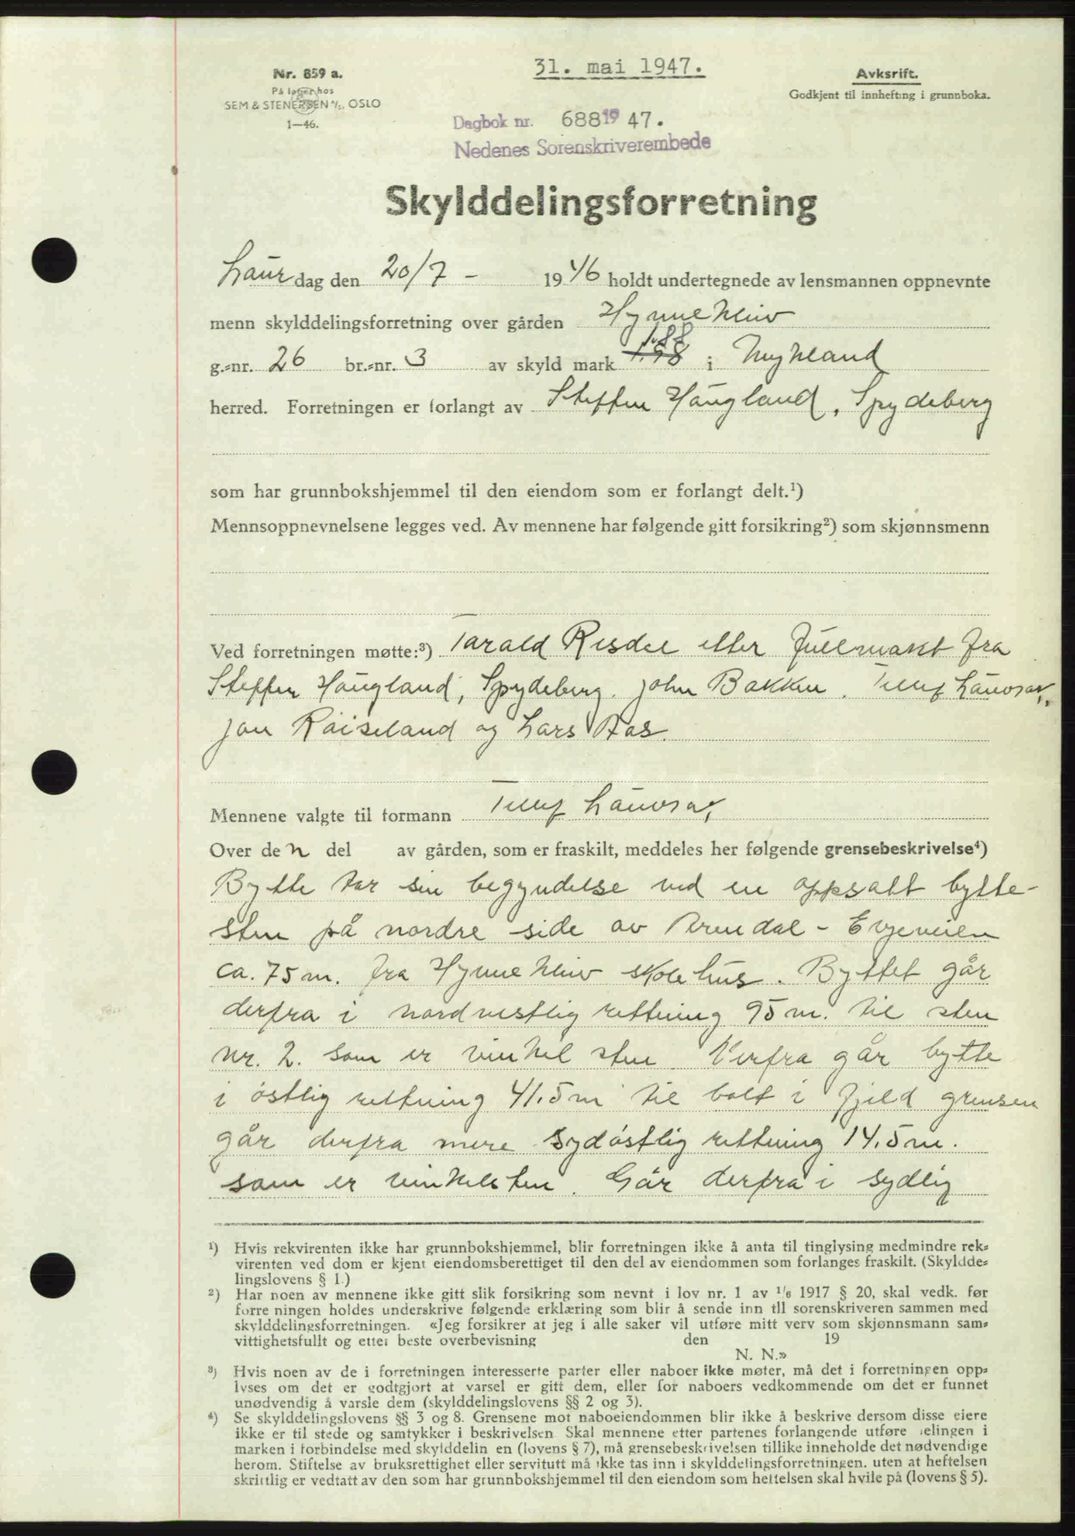 Nr. 859 a.
På lager hos
SEM & STENERSEN A/S, OSLO
1—46.
31. mai 1947.
Avskrift.
Godkjent til innhefting i grunnboka.
Dagbok nr. 688 19 47.
Nedenes Sorenskriverembede
Skylddelingsforretning
Laur dag den 20/7 - 19 46 holdt undertegnede av lensmannen oppnevnte
menn skylddelingsforretning over gården Hynnekleiv
g.=nr. 26 br.=nr. 3 av skyld mark 1.88 i Mykland
herred. Forretningen er forlangt av Steffen Haugland, Spydeberg
som har grunnbokshjemmel til den eiendom som er forlangt delt.¹)
Mennsoppnevnelsene legges ved. Av mennene har følgende gitt forsikring²) som skjønnsmenn
Ved forretningen møtte:³) Tarald Risdal etter fullmakt fra
Steffen Haugland, Spydeberg. John Bakken. Tellef Lauvrak,
Jon Råiseland og Lars Aas.
Mennene valgte til formann Tellef Lauvrak,
Over de n del av gården, som er fraskilt, meddeles her følgende grensebeskrivelse⁴)
Bytte tar sin begyndelse ved en oppsatt bytte-
sten på nordre side av Arendal - Evjeveien
ca. 75 m. fra Hynnekleiv skolehus. Byttet går
derfra i nordvestlig rettning 95 m. til sten
nr. 2. som er vinkel sten Derfra går bytte
i østlig rettning 41.5 m til bolt i fjeld grensen
går derfra mere sydøstlig rettning 14.5 m.
som er vinkelsten. Går derfra i sydlig
¹) Hvis rekvirenten ikke har grunnbokshjemmel, blir forretningen ikke å anta til tinglysing medmindre rek=
virenten ved dom er kjent eiendomsberettiget til den del av eiendommen som forlanges fraskilt. (Skyldde=
lingslovens § 1.)
²) Har noen av mennene ikke gitt slik forsikring som nevnt i lov nr. 1 av 1/6 1917 § 20, skal vedk. før
forretningen holdes underskrive følgende erklæring som blir å sende inn til sorenskriveren sammen med
skylddelingsforretningen. «Jeg forsikrer at jeg i alle saker vil utføre mitt verv som skjønnsmann sam=
vittighetsfullt og etter beste overbevisning den 19
N. N.»
³) Hvis noen av de i forretningen interesserte parter eller naboer ikke møter, må det i forretningen opp=
lyses om det er godtgjort at varsel er gitt dem, eller for naboers vedkommende om det er funnet
unødvendig å varsle dem (skylddelingslovens §§ 2 og 3).
⁴) Se skylddelingslovens §§ 3 og 8. Grensene mot naboeiendommen blir ikke å beskrive dersom disse eiere
ikke er til stede og samtykker i beskrivelsen Skal mennene etter partenes forlangende utføre delingen i
marken i forbindelse med skylddelingen (lovens § 7), må grensebeskrivelsen tillike inneholde det nødvendige
herom. Stiftelse av bruksrettighet eller servitutt må ikke tas inn i skylddelingsforretningen, uten at heftelsen
skriftlig er vedtatt av den som har grunnbokshjemmel til den eiendom som heftelsen skal hvile på (lovens § 5).